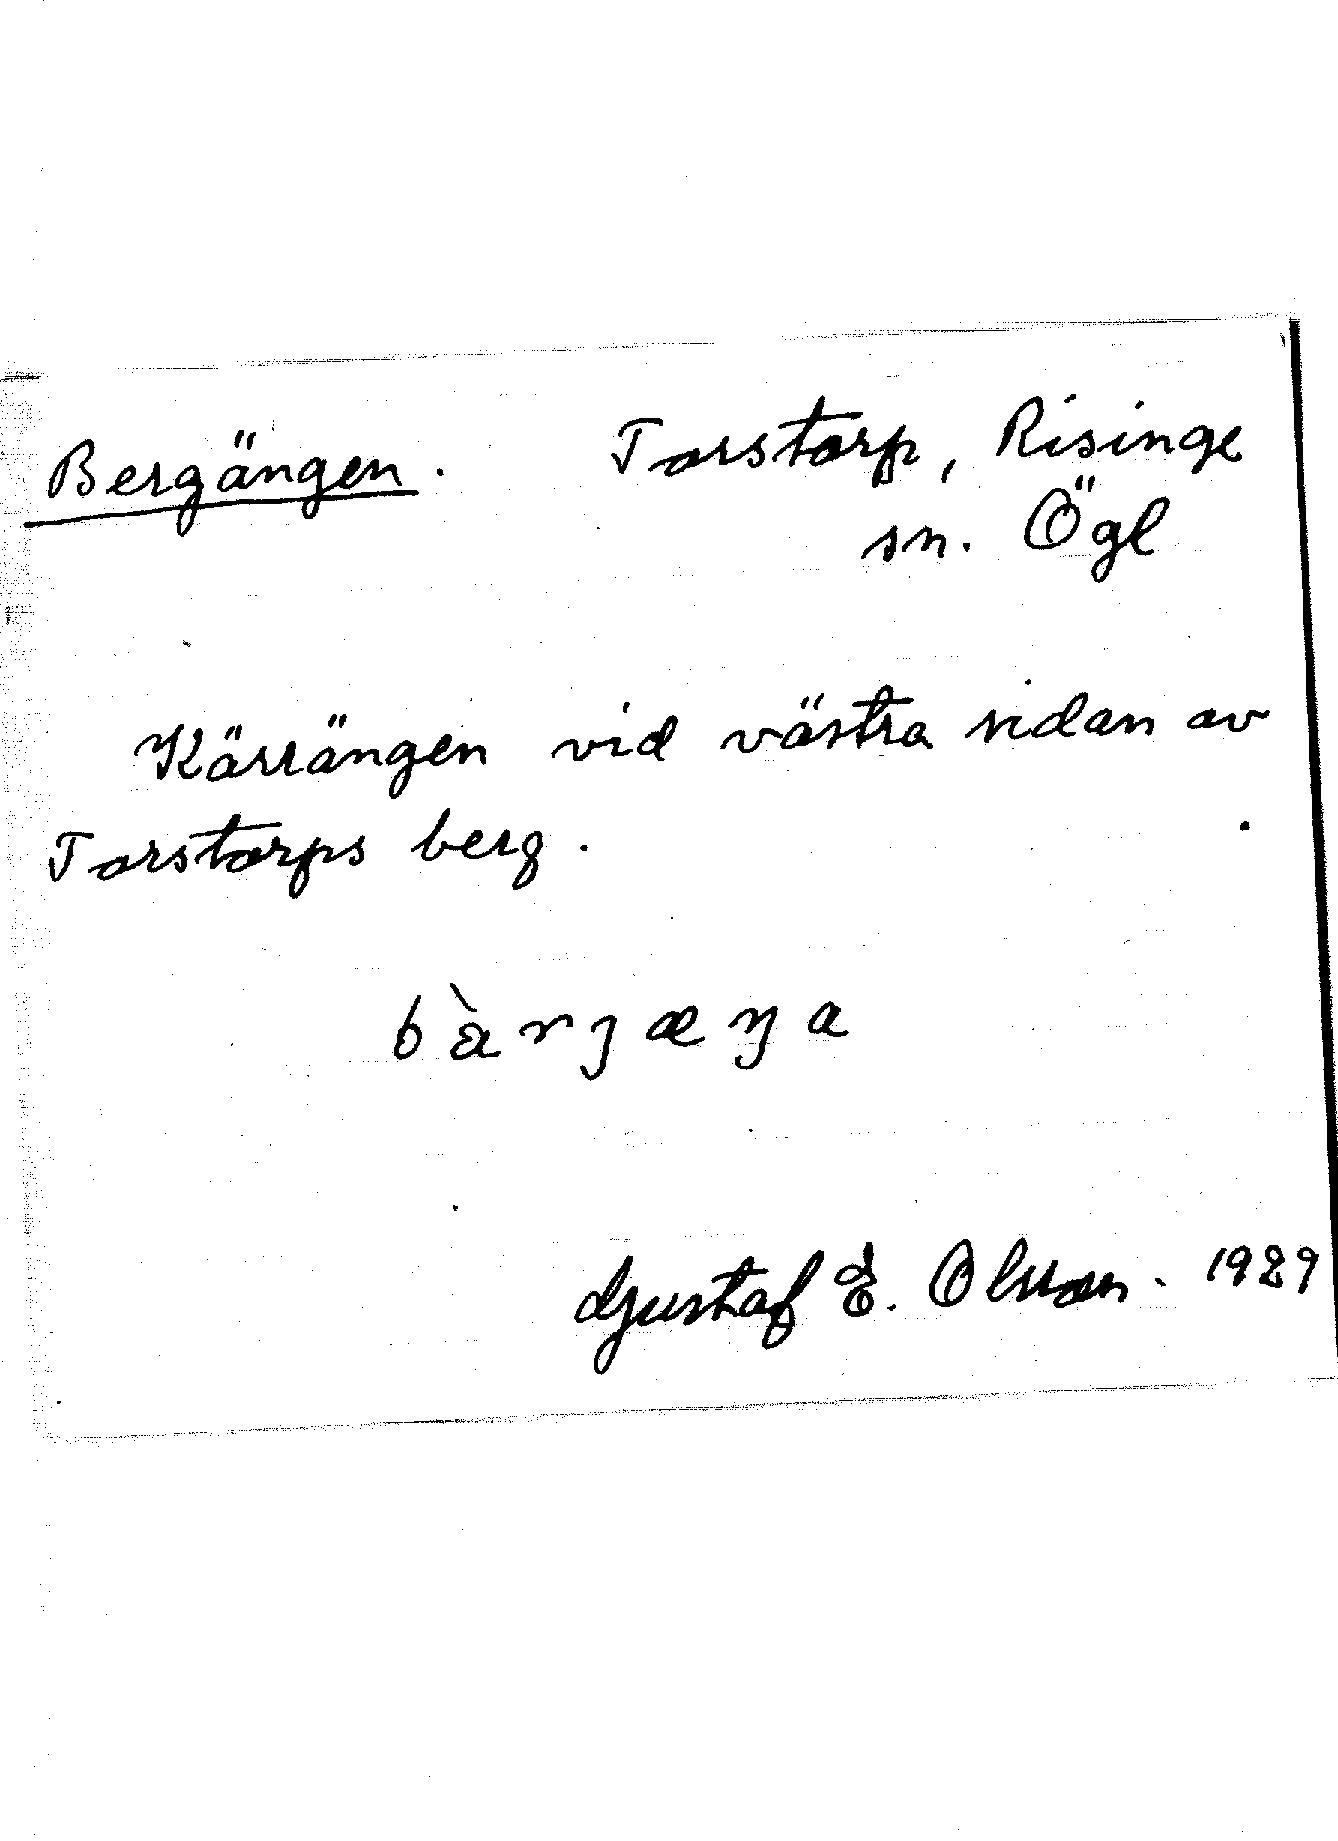 Bergängen. Torstorp, Risinge
sn. Ögl
Kärrängen vid västra sidan av
Torstorps berg.
bàrjæŋa
Gustaf E. Olsson. 1929